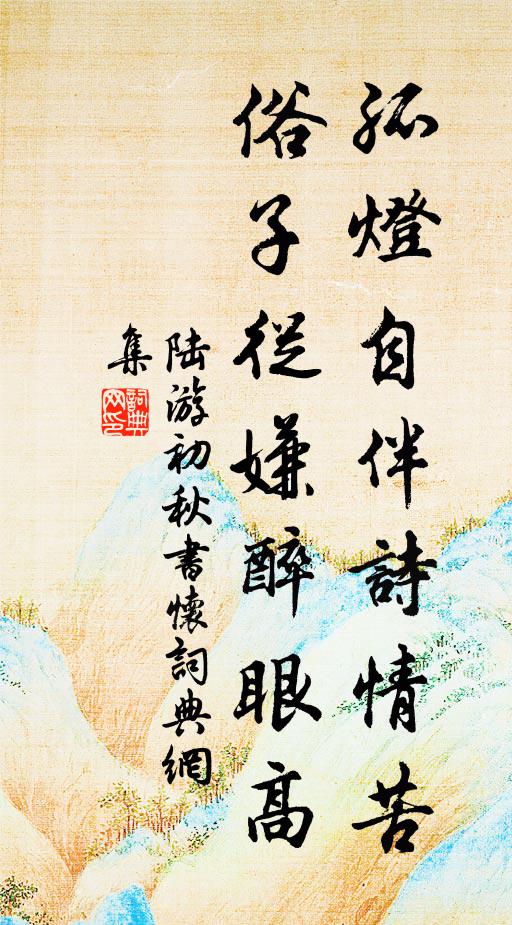 孤燈自伴詩情苦
俗子從嫌醉眼高
陆游初秋書懷詞典網
集
詞典
网印